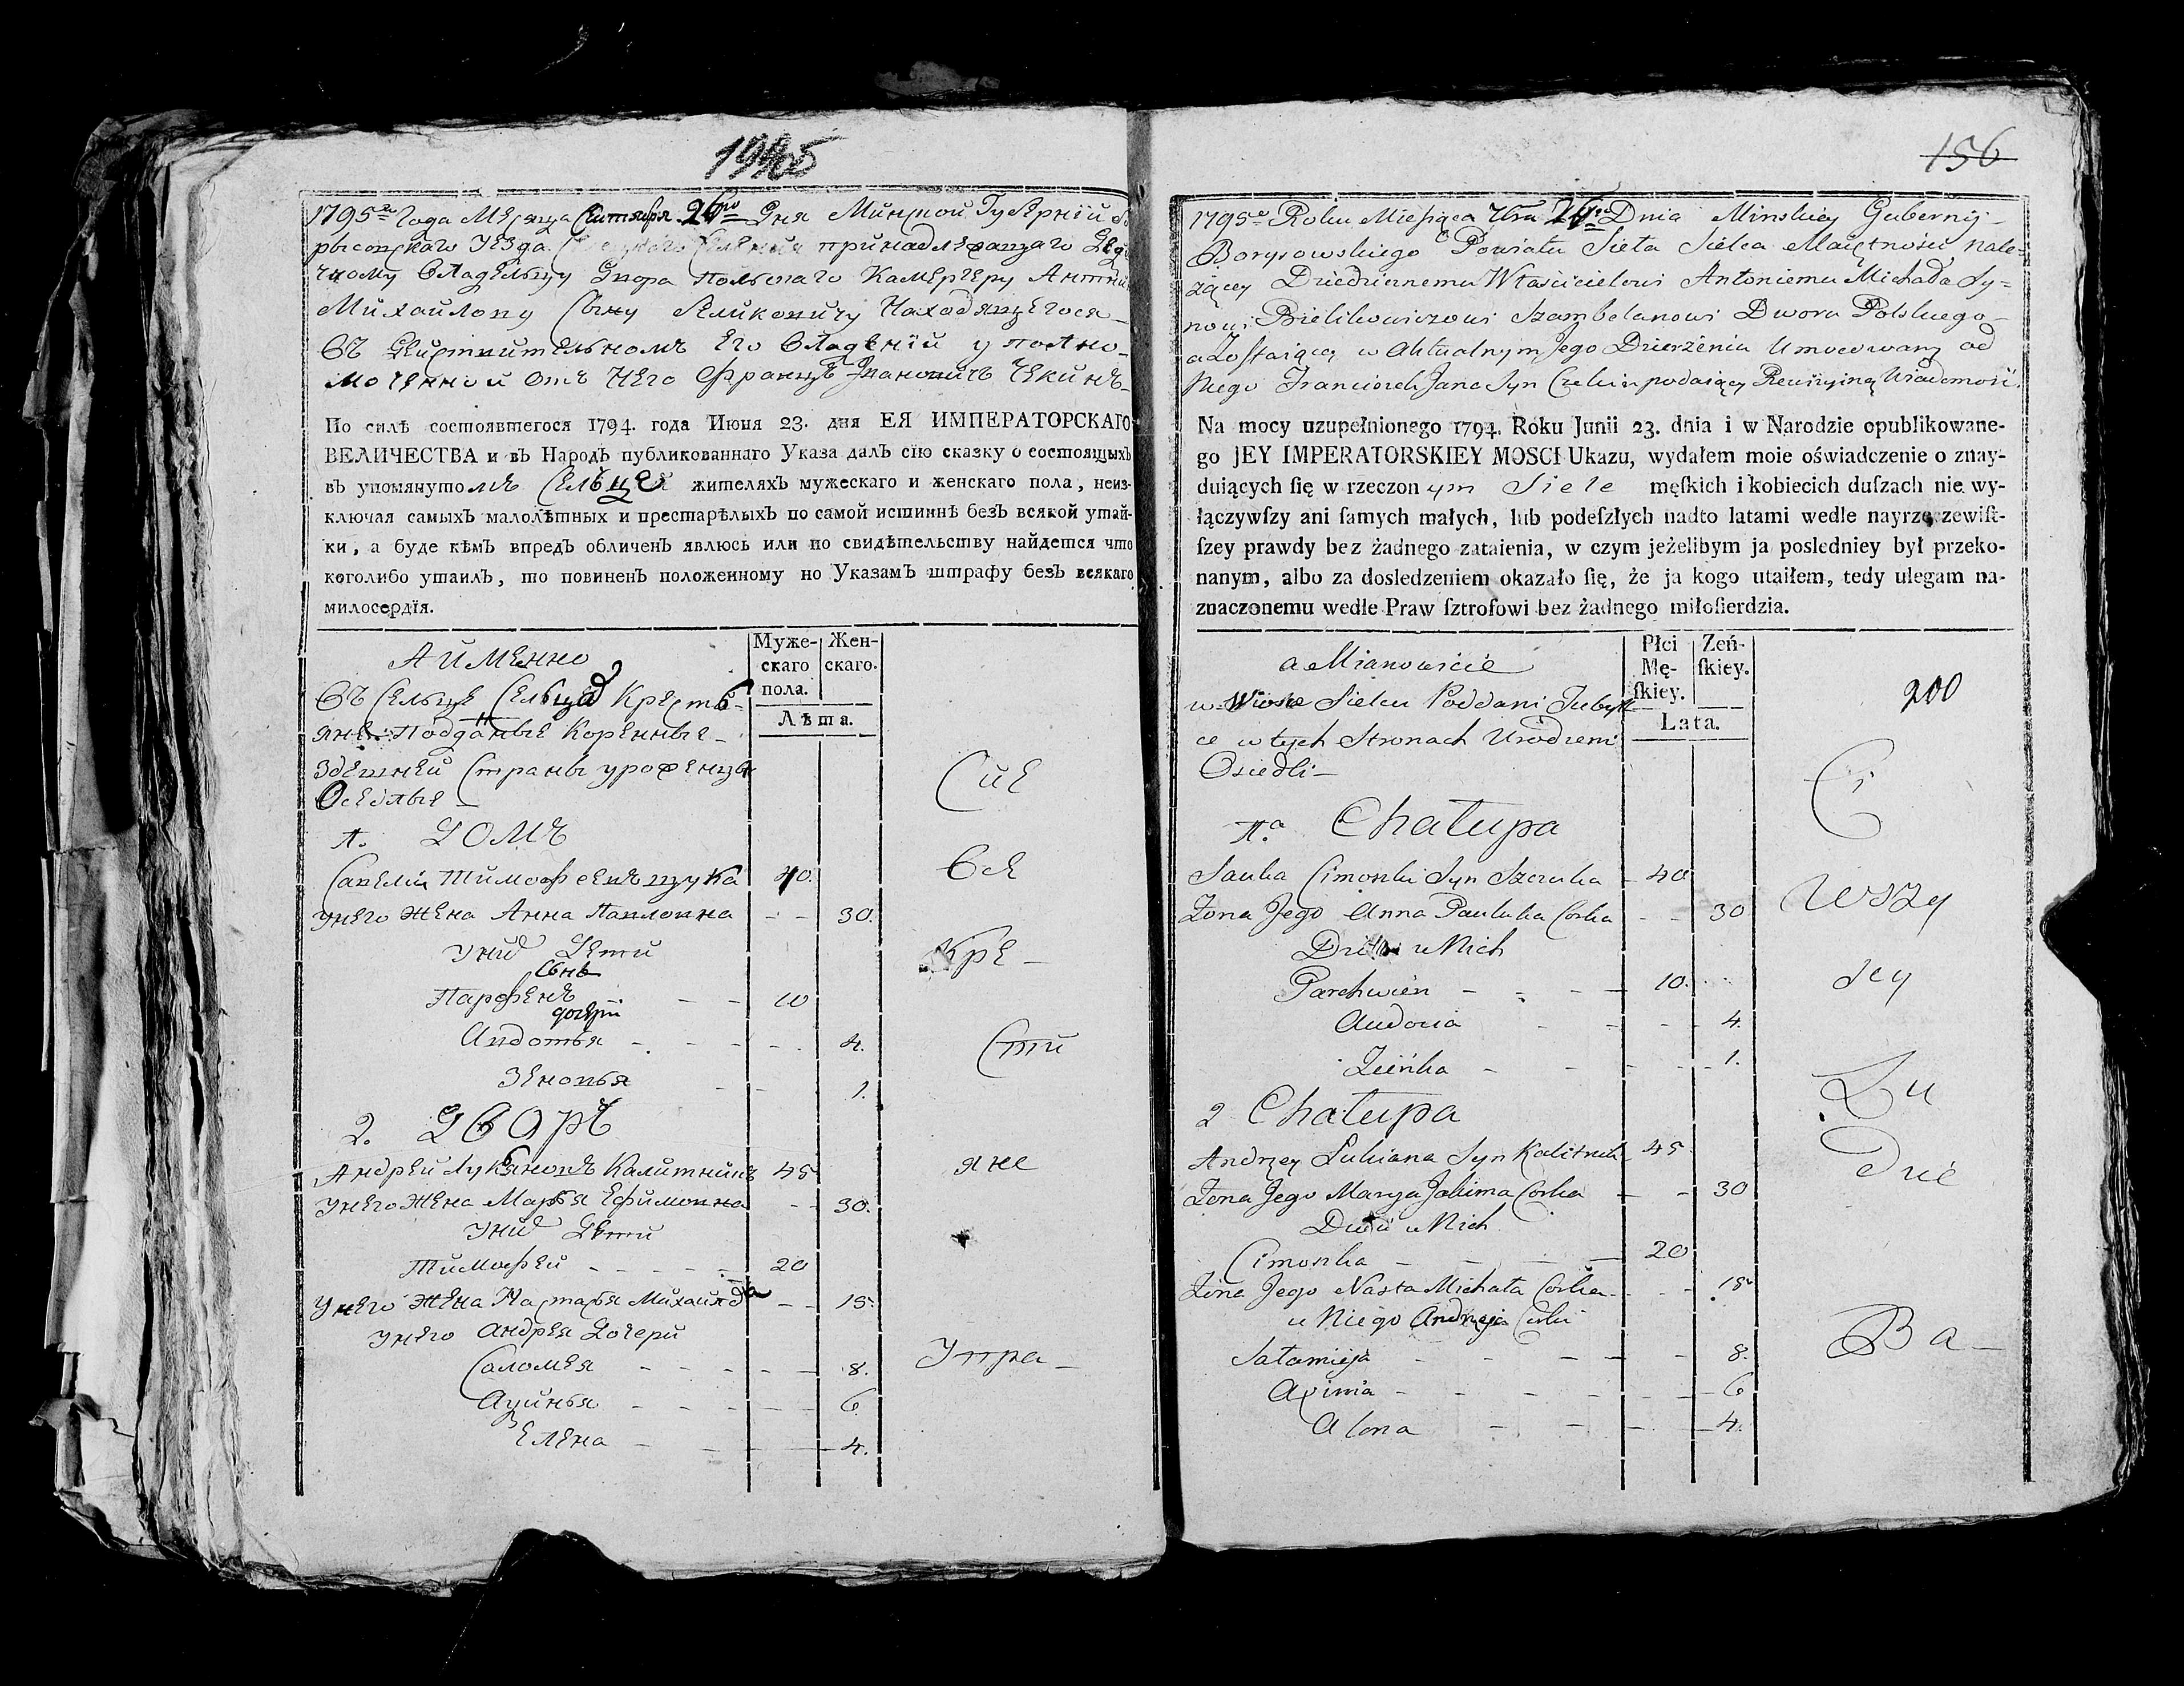 1795го Года Месяца Сентября 26го Дня Минской Губернїи Бо
рысовскаго Уезда принадлежащаго Дедй
чному Владельцу Двора польскаго Камергеру Антони
Михайлову Сыну Беликовичу Находящегося
Въ Действительномъ Его Владенїи уполно-
моченной отъ Него Францъ Ивановичъ Чекинъ
По силѣ состоявшегося 1794. года Июня 23. дня ЕЯ ИМПЕРАТОРСКАГО
ВЕЛИЧЕСТВА и въ Народъ публикованнаго Указа далъ сїю сказку о состоящыхъ
въ упомянутомъ Сельце жителяхъ мужескаго и женскаго пола, неиз-
ключая самыхъ малолѣтныхъ и престарѣлыхъ по самой истиннѣ безъ всякой утай-
ки, а буде кѣмъ впредь обличенъ явлюсь или по свидѣтельству найдется что
коголибо утаилъ, то повиненъ положенному по Указамъ штрафу безъ всякаго
милосердїя.
А Именно
Въ Сельце Сельца Кресть-
яне Подданые Коренные
Здешней Страны уроженцы
Оседлые
Муже-
скаго
пола.
Жен-
скаго.
Лѣта.
1. Домъ
Савелїй Тимофеевъ щука 40.
Унего Жена Анна Павловна - - 30.
Унихъ Дети
Сынъ
Парфенъ - - - 10
дочери
Авдотья - - - - 4.
Зеновья - - 1.
2. Дворъ
Андрей Лукьяновъ Калитникъ 45
Унего Жена Марья Ефимовна - - 30.
Унихъ Дети
Тимофей - - - - - 20
Унего Жена Настасья Михайлова - - 18
Унего Андрея Дочери
Саломея - - - - - 8.
Аксинья - - - - - 6
Елена - - - 4.
Сие
Все
Кре-
Сти
яне
Упра-
156
1795o Roku Miesiąca 7bra 26go Dnia Minskiey Gubernij
Borysowskiego Powiatu Sieła Sielca Maiętności nale-
żącey Dziedzicznemu Właścicielowi Antoniemu Michała Sy=
nowi Bielikowiczowi Szambelanowi Dworu Polskiego
a Zostaiącey w Aktualnym Jego Dzierżeniu Umocowany od
Niego Franciszek Jana Syn Czekin podaiący Rewizyiną Wiadomość.
Na mocy uzupełnionego 1794. Roku Junii 23. dnia i w Narodzie opublikowane-
go JEY IMPERATORSKIEY MOSCI Ukazu, wydałem moie oświadczenie o znay-
duiących ſię w rzeczonym Siele męſkich i kobiecich duſzach nie wy-
łączywſzy ani ſamych małych, lub podeſzłych nadto latami wedle nayrzeczewiſt-
ſzey prawdy bez żadnego zataienia, w czym jeżelibym ja posledniey był przeko-
nanym, albo za dosledzeniem okazało ſię, że ja kogo utaiłem, tedy ulegam na-
znaczonemu wedle Praw ſztrofowi bez żadnego miłoſierdzia.
a Mianowicie
w Wiosce Sielcu Poddani Tubyl
ce w tych Stronach Urodzeni
Osiedli
Płci
Mę-
ſkiey.
Zeń-
ſkiey.
Lata.
200
1.a Chałupa
Sauka Cimoszki Syn Szczuka - 40
Żona Jego Anna Pauluka Corka - - 30
Dzieci u Nich
Parchwien - - - - 10.
Audocia - - - 4.
Zieńka - - - - 1.
2 Chałupa
Andrzey Lukiana Syn Kalitnik 45
Żona Jego Marya Jachima Corka - - 30
Dzieci u Nich
Cimoszka - - - - 20
Żona Jego Nasta Michała Corka - - - 18
u Niego Andrzeja Corki
Sałamieja - - - - - 8.
Axinia - - - - - 6
Alona - - - - 4.
Ci
Wszy
scy
Lu
dzie
Ba-